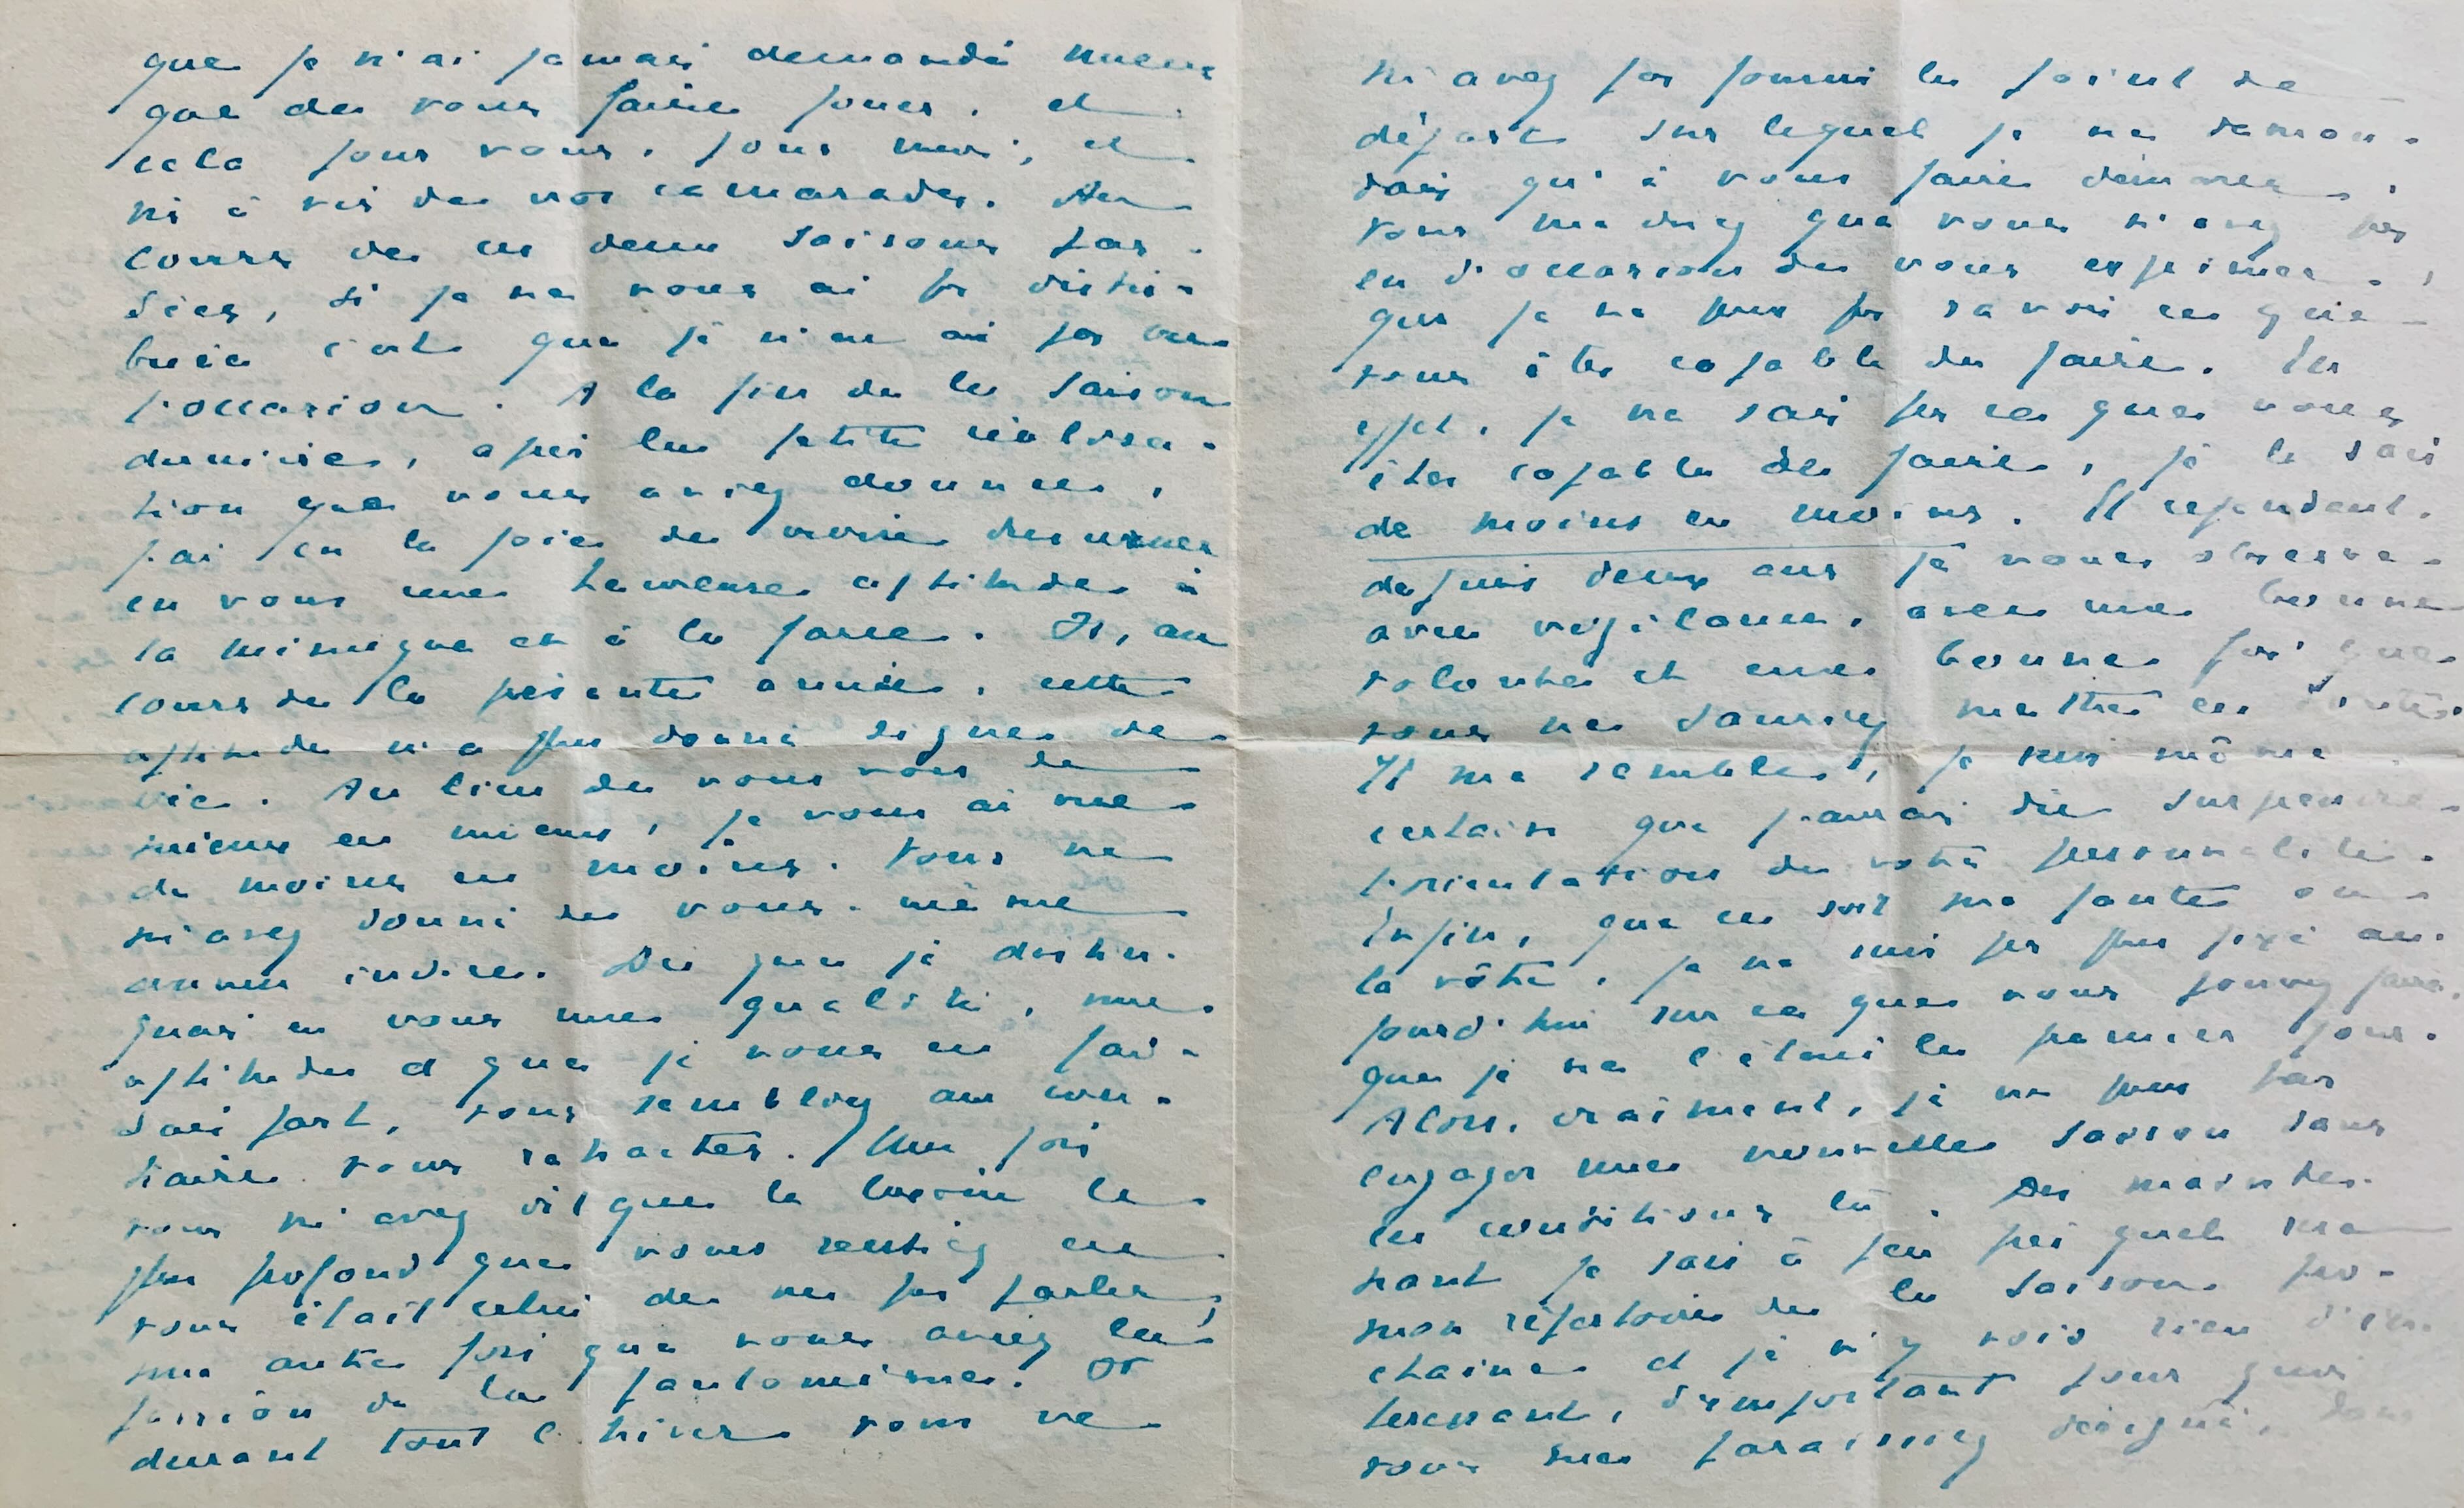 que je n'ai jamais demandé mieux
que de vous faire jouer. et
cela pour vous, pour moi, et
vis à vis de vos camarades. Au
cours de ces deux saisons pas-
sées, si je ne vous ai pas distri-
buée c'est que je n'en ai pas eu
l'occasion. A la fin de la saison
dernière, après la petite réalisa-
tion que vous aviez donnée,
j'ai eu la joie de
en vous une heureuse aptitude à
la mimique et à la farce. Or, au
cours de la présente année, cette
aptitude n'a plus donné signe de
vie. Au lieu de vous voir de
mieux en mieux, je vous ai vue
de moins en moins. Vous ne
m'avez donné de vous-même
aucun indice. Dès que je distin-
guais en vous une qualité, une
aptitude et que je vous en fai-
sais part, vous sembliez au con-
traire vous rétracter. Une fois
vous m'avez dit que le besoin le
plus profond que vous sentiez en
vous était celui de ne pas parler,
une autre fois que vous aviez la
passion de la pantomime. Or
durant tout l'hiver vous ne
m'avez pas fourni le point de
départ sur lequel je ne deman-
dais qu'à vous faire démarrer.
Vous me direz que vous n'avez pas
eu d'occasions de vous exprimer,
que je ne peux pas savoir ce que
vous êtes capable de faire. En
effet, je ne sais pas ce que vous
êtes capable de faire, je le sais
de moins en moins. Et cependant,
depuis deux ans je vous observe
avec vigilance, avec une bonne
volonté et une bonne foi que
vous ne sauriez mettre en doute.
Il me semble, je suis même
certain que j'aurais dû surprendre
l'orientation de votre personnalité.
Enfin, que ce soit ma faute ou
la vôtre, je ne suis pas plus fixé au-
jourd'hui sur ce que vous pouvez faire
que je ne l'étais le premier jour.
Alors, vraiment, je ne peux pas
engager une nouvelle saison dans
ces conditions là. Dès mainte-
nant je sais à peu près quel sera
mon répertoire de la saison pro-
chaine et je n'y vois rien d'in-
téressant, d'important pour quoi
vous me paraissiez désignée, dans